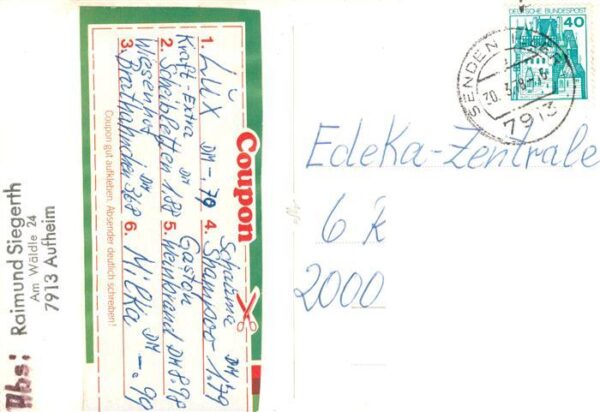 DEUTSCHE BUNDESPOST
40
SENDEN
7913
Edeka-Zentrale
6 R
2000
Coupon
1. LÜX DM -.79
Kraft-Extra
2. Scheibletten DM 1.88
Wiesenhof
3. Brathähnchen DM 3.68
4. Schauma
Shampoo DM 1.79
Gaston
5. Weinbrand DM 8.98
6. Milka DM -.99
Coupon gut aufkleben. Absender deutlich schreiben!
Abs:
Raimund Siegerth
Am Wäldle 24
7913 Aufheim